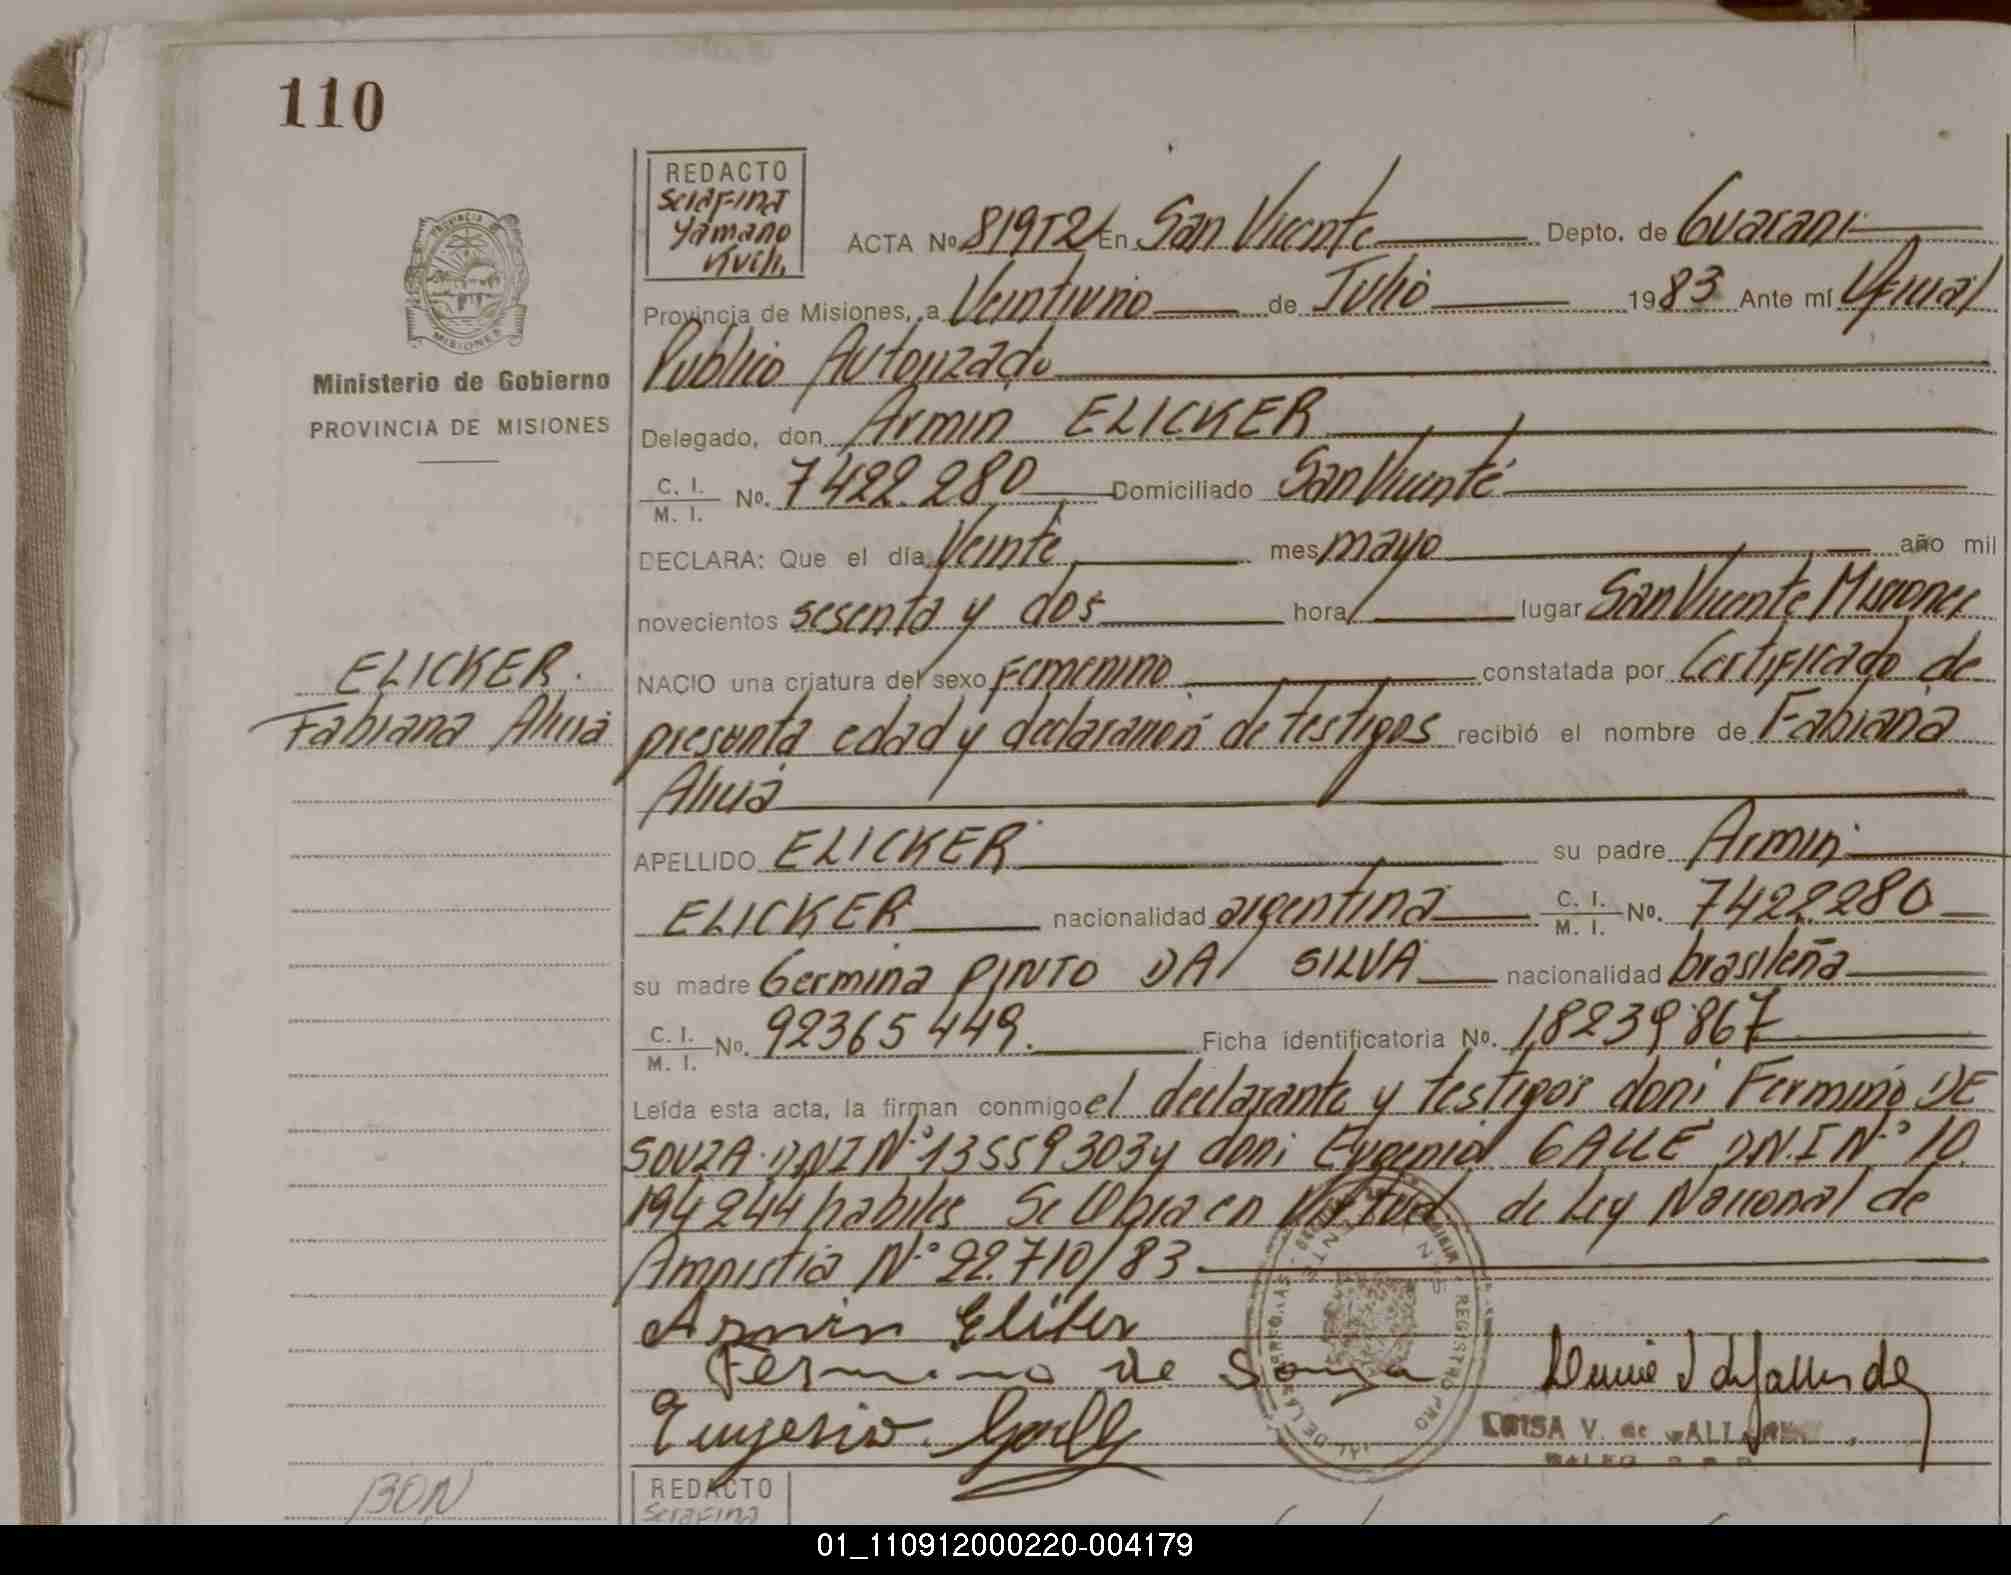 110
REDACTO
Serafina
Yamano
Kuch.
ACTA Nº 819T2 En San Vicente Depto. de Guarani
Provincia de Misiones, a Veintiuno de Julio 1983 Ante mí Oficial
Publico Autorizado
Delegado, don Armin ELICKER
C. I.
M. I. Nº. 7422.280 Domiciliado San Vicente
DECLARA: Que el día Veinte mes mayo año mil
novecientos sesenta y dos hora lugar San Vicente Misiones
NACIO una criatura del sexo Femenino constatada por Certificado de
presunta edad y declaracion de testigos recibió el nombre de Fabiana
Alicia
APELLIDO ELICKER su padre Armin
ELICKER nacionalidad argentina C. I.
M. I. Nº. 7422.280
su madre Germina PINTO DA SILVA nacionalidad brasileña
C. I.
M. I. Nº. 92365449. Ficha identificatoria Nº. 18239867
Leída esta acta, la firman conmigo el declarante y testigos don: Fermino DE
SOUZA DNI Nº 13559303 y don: Eugenio GALLE DN.I Nº 10.
194244 habiles Se Obra en Virtud de Ley Nacional de
Amnistia Nº 22.710/83
Armin Eliker
Fermino de Souza
Eugenio Gall
LUISA V. de
PROVINCIA DE
MISIONES
Ministerio de Gobierno
PROVINCIA DE MISIONES
ELICKER.
Fabiana Alicia
BON
REDACTO
Serafina
01_110912000220-004179